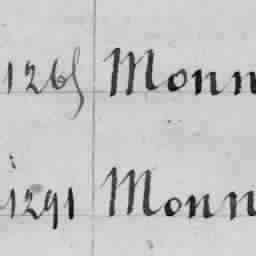 1265 Monn
1291 Monn